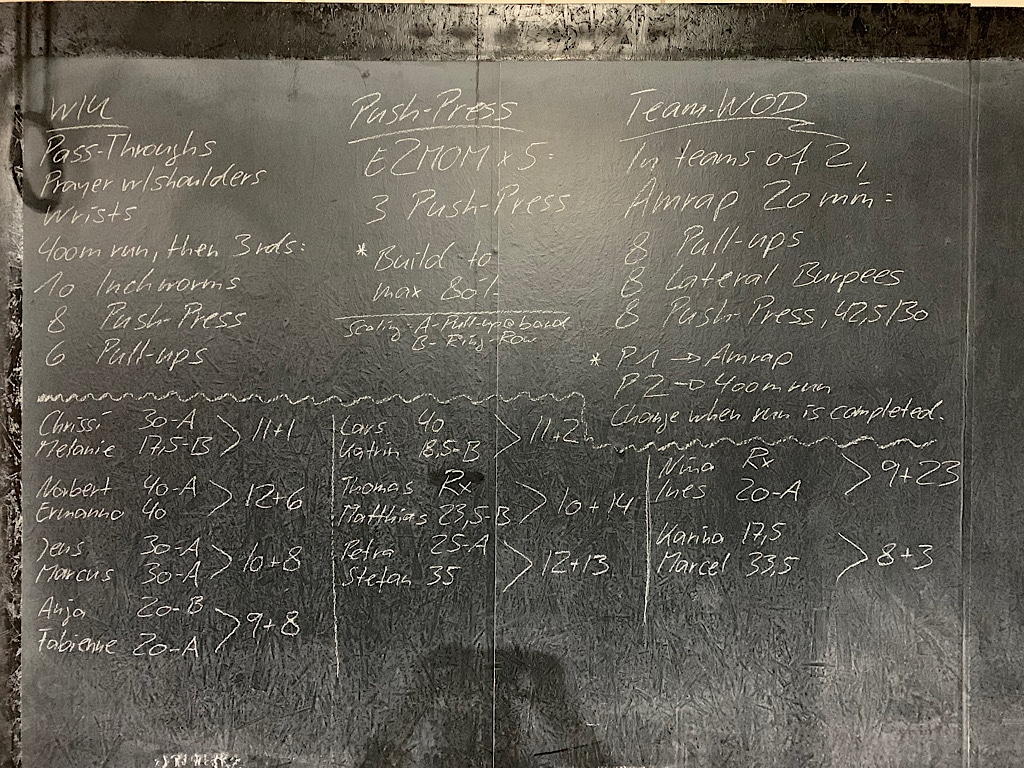 WU
Pass-Throughs
Prayer w/shoulders
Wrists
400m run, then 3rds:
10 Inchworms
8 Push-Press
6 Pull-ups
Push-Press
E2MOM x 5:
3 Push-Press
* Build to
max 80%
Scaling-A-Pull-ups@band
B-Ring-Row
Team-WOD
In teams of 2,
Amrap 20min:
8 Pull-ups
8 Lateral Burpees
8 Push-Press, 42,5/30
* P1 → Amrap
P2 → 400m run
Change when run is completed.
Chrissi 30-A
Melanie 17,5-B > 11+1
Norbert 40-A
Ermanno 40 > 12+6
Jens 30-A
Marcus 30-A > 10+8
Anja 20-B
Fabienne 20-A > 9+8
Lars 40
Katrin 18,5-B > 11+2
Thomas Rx
Matthias 23,5-B > 10+14
Petra 25-A
Stefan 35 > 12+13
Nina Rx
Ines 20-A > 9+23
Karina 17,5
Marcel 33,5 > 8+3